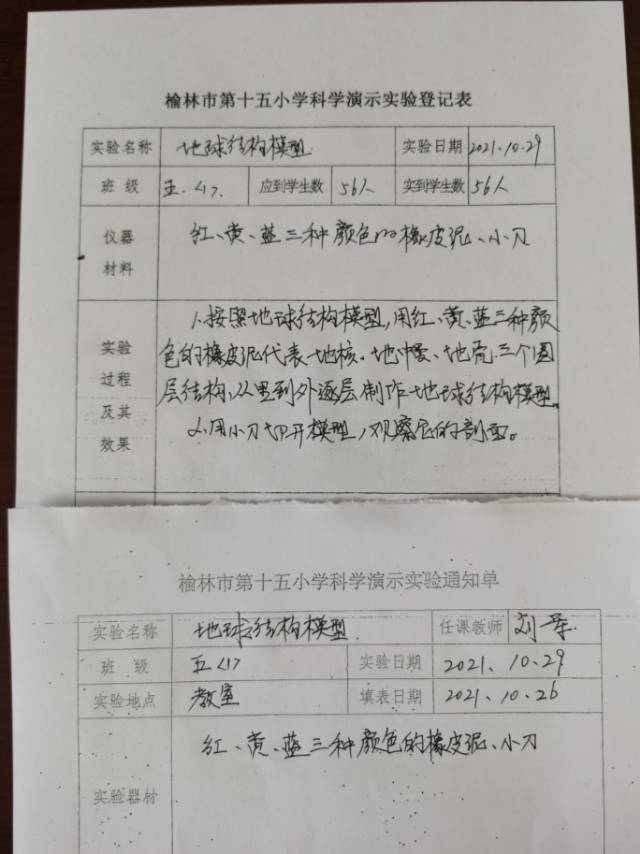 榆林市第十五小学科学演示实验登记表
实验名称 地球结构模型 实验日期 2021.10.29
班 级 五.<1>. 应到学生数 56人 实到学生数 56人
仪器
材料
红、黄、蓝三种颜色的橡皮泥、小刀
实验
过程
及其
效果
1.按照地球结构模型,用红、黄、蓝三种颜
色的橡皮泥代表地核、地幔、地壳三个圈
层结构,从里到外逐层制作地球结构模型.
2.用小刀切开模型,观察它的剖面。
榆林市第十五小学科学演示实验通知单
实验名称 地球结构模型. 任课教师 刘
班 级 五<1> 实验日期 2021.10.29
实验地点 教室 填表日期 2021.10.26
实验器材
红、黄、蓝三种颜色的橡皮泥、小刀